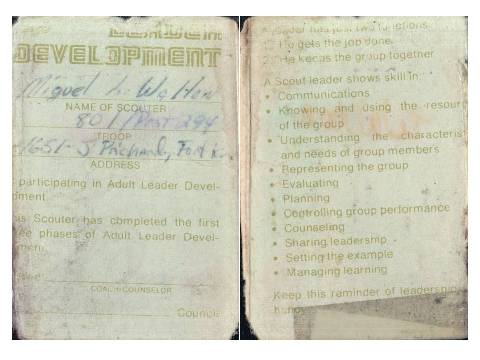 LEADER
DEVELOPMENT
Miguel L. Walton
NAME OF SCOUTER
801/Post 294
TROOP
ADDRESS
participating in Adult Leader Devel-
Scouter has completed the first
phases of Adult Leader Devel-
COACH-COUNSELOR
Council
A leader has just two functions.
He gets the job done.
He keeps the group together
A Scout leader shows skill in:
• Communications
• Knowing and using the resour
of the group
• Understanding the characteris
and needs of group members
• Representing the group
• Evaluating
• Planning
• Controlling group performance
• Counseling
• Sharing leadership
• Setting the example
• Managing learning
Keep this reminder of leadership